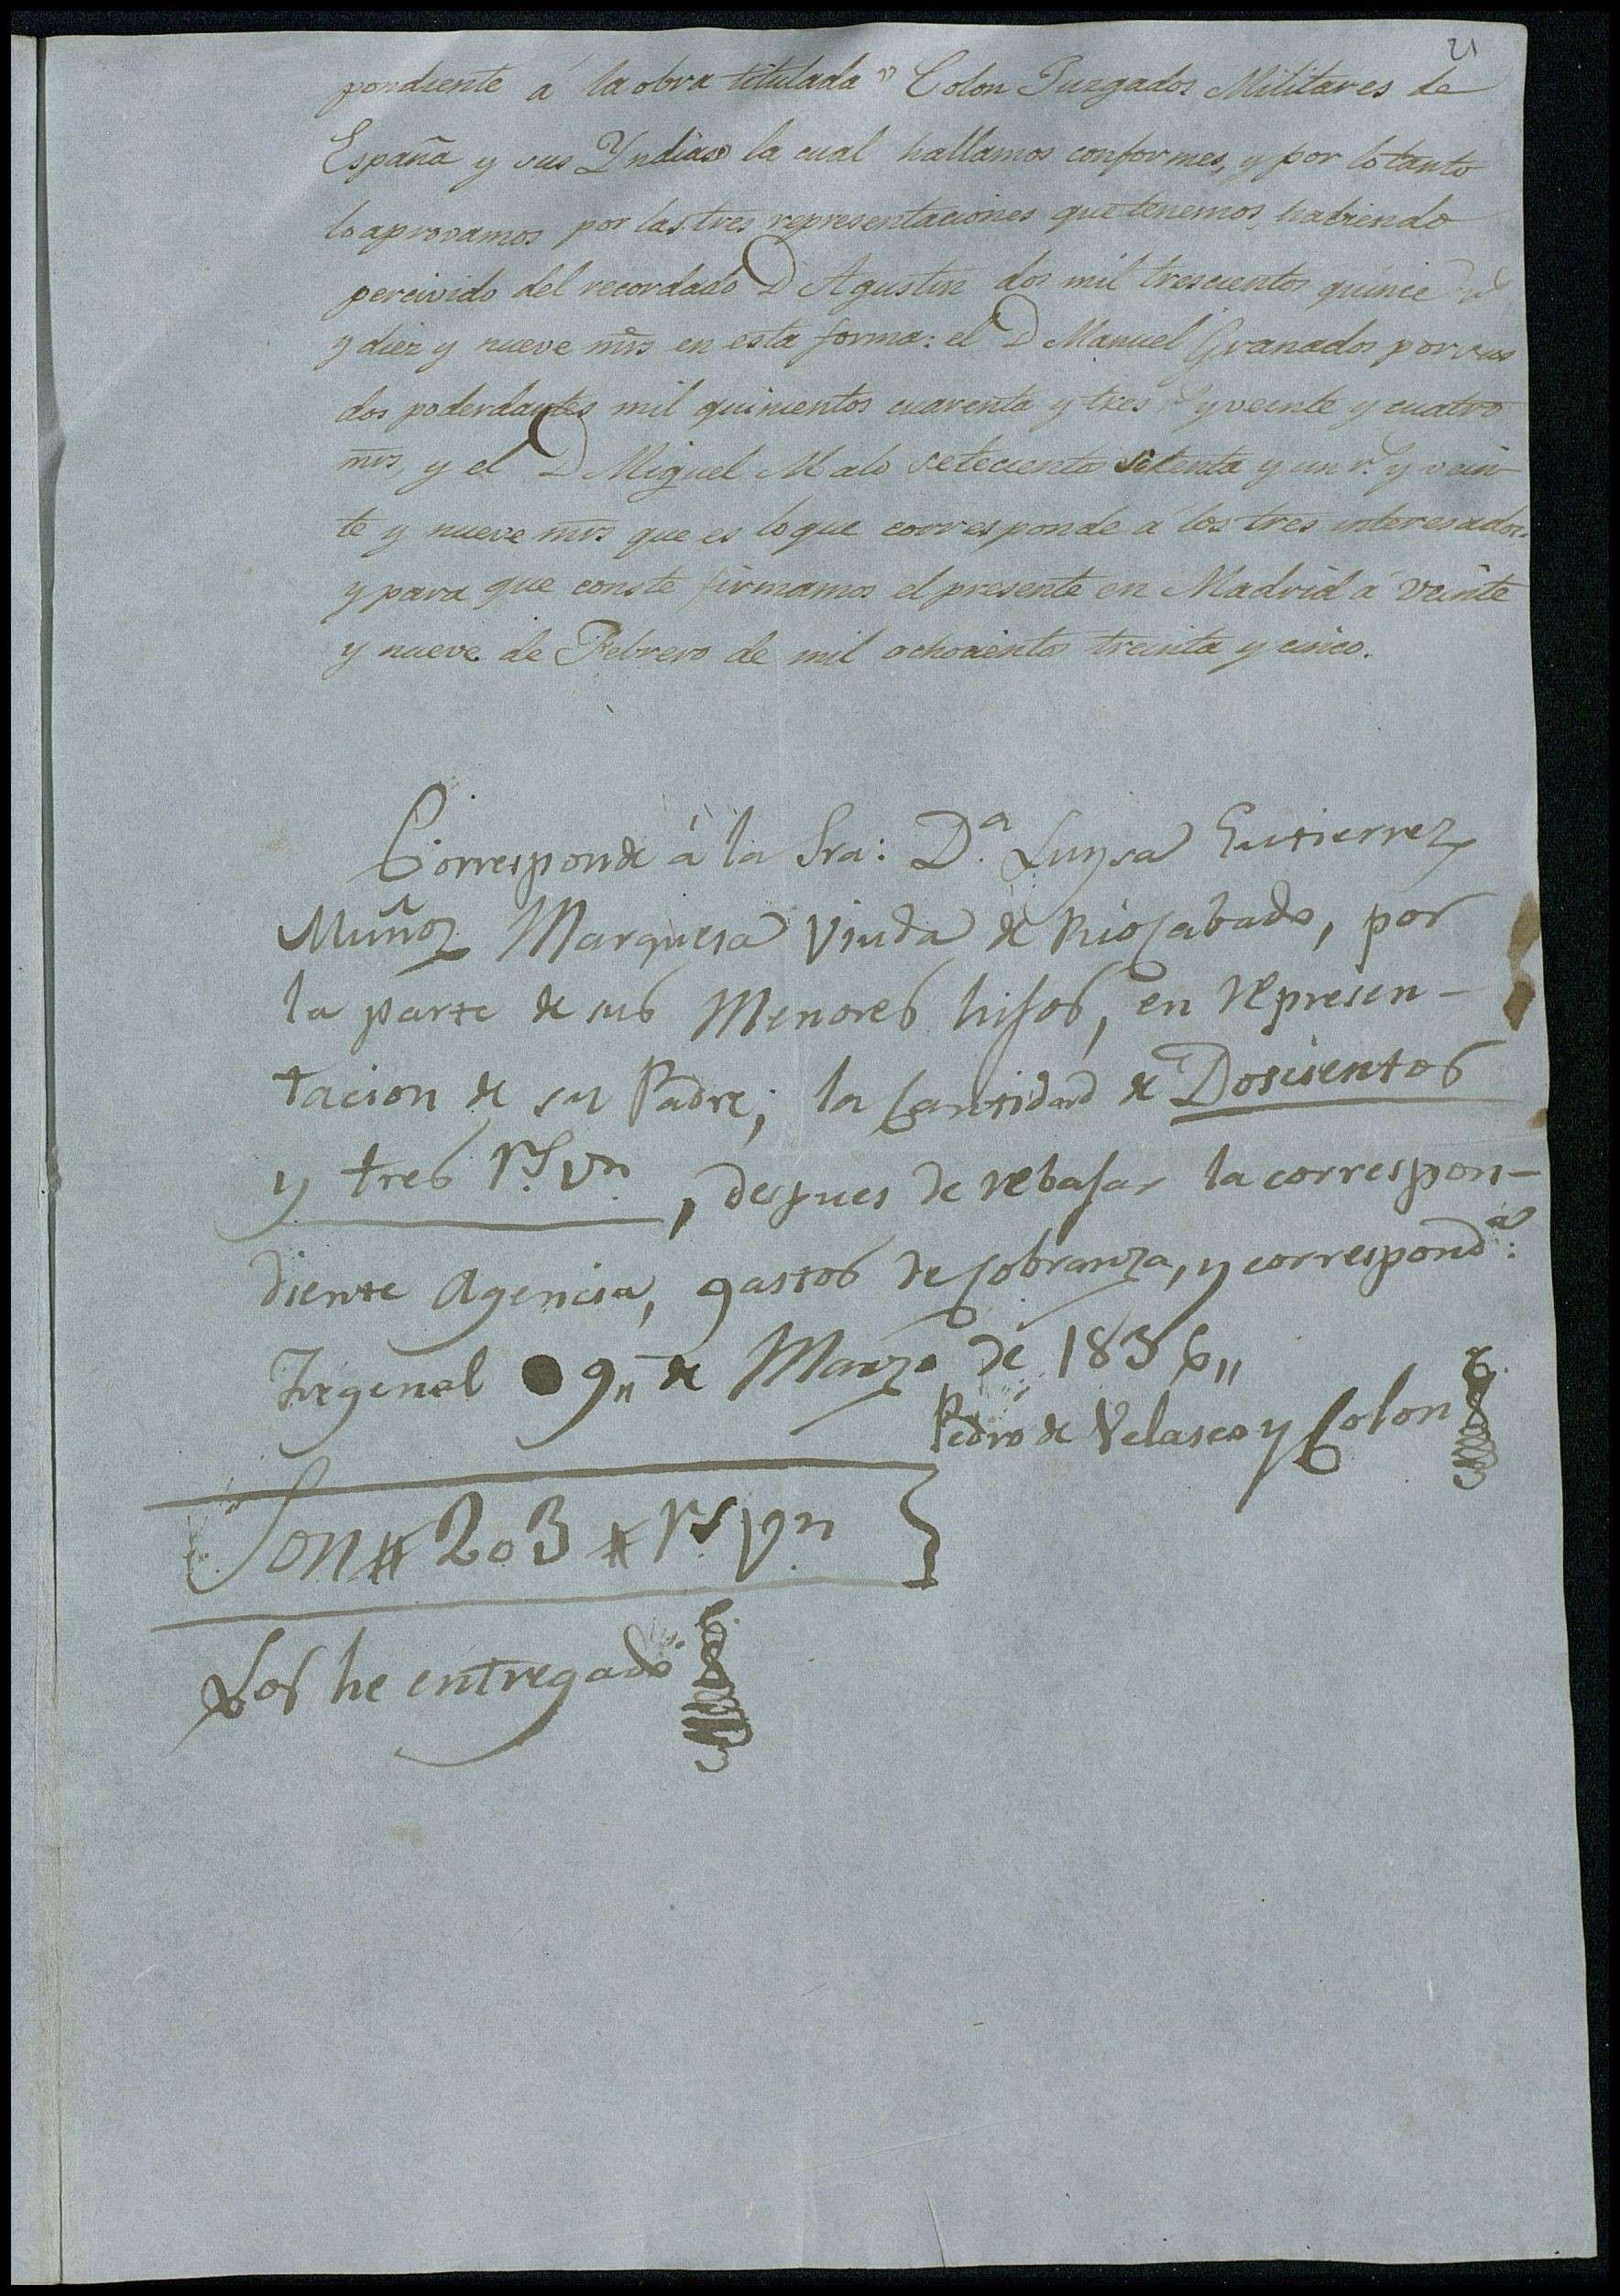 21
pondiente á la obra titulada " Colon Juzgados Militares de
España y sus Yndias la cual hallamos conformes, y por lo tanto
lo aprovamos por las tres representaciones que tenemos, habiendo
percivido del recordado D Agustin dos mil trescientos quince rs
y diez y nueve mrs en esta forma: el D Manuel Granados por sus
dos poderdantes mil quinientos cuarenta y tres y veinte y cuatro
mrs, y el D Miguel Malo setecientos setenta y un r.s y vein
te y nueve mrs que es lo que corresponde á los tres interesados.
y para que conste firmamos el presente en Madrid á veinte
y nueve de Febrero de mil ochocientos treinta y cinco.
Corresponde á la Sra: D.a Luysa Gutierrez
Muñoz Marquesa Viuda de Riosabado, por
la parte de sus Menores hijos, en represen-
tacion de su Padre; la Cantidad de Doscientos
y tres r.s v.n, despues de rebajar la correspon-
diente Agencia, gastos de Cobranza, y correspond.a:
Fregenal 9,, de Marzo de 1836,,
Pedro de Velasco y Colon
Son # 203 # r.s v.n
Los he entregado